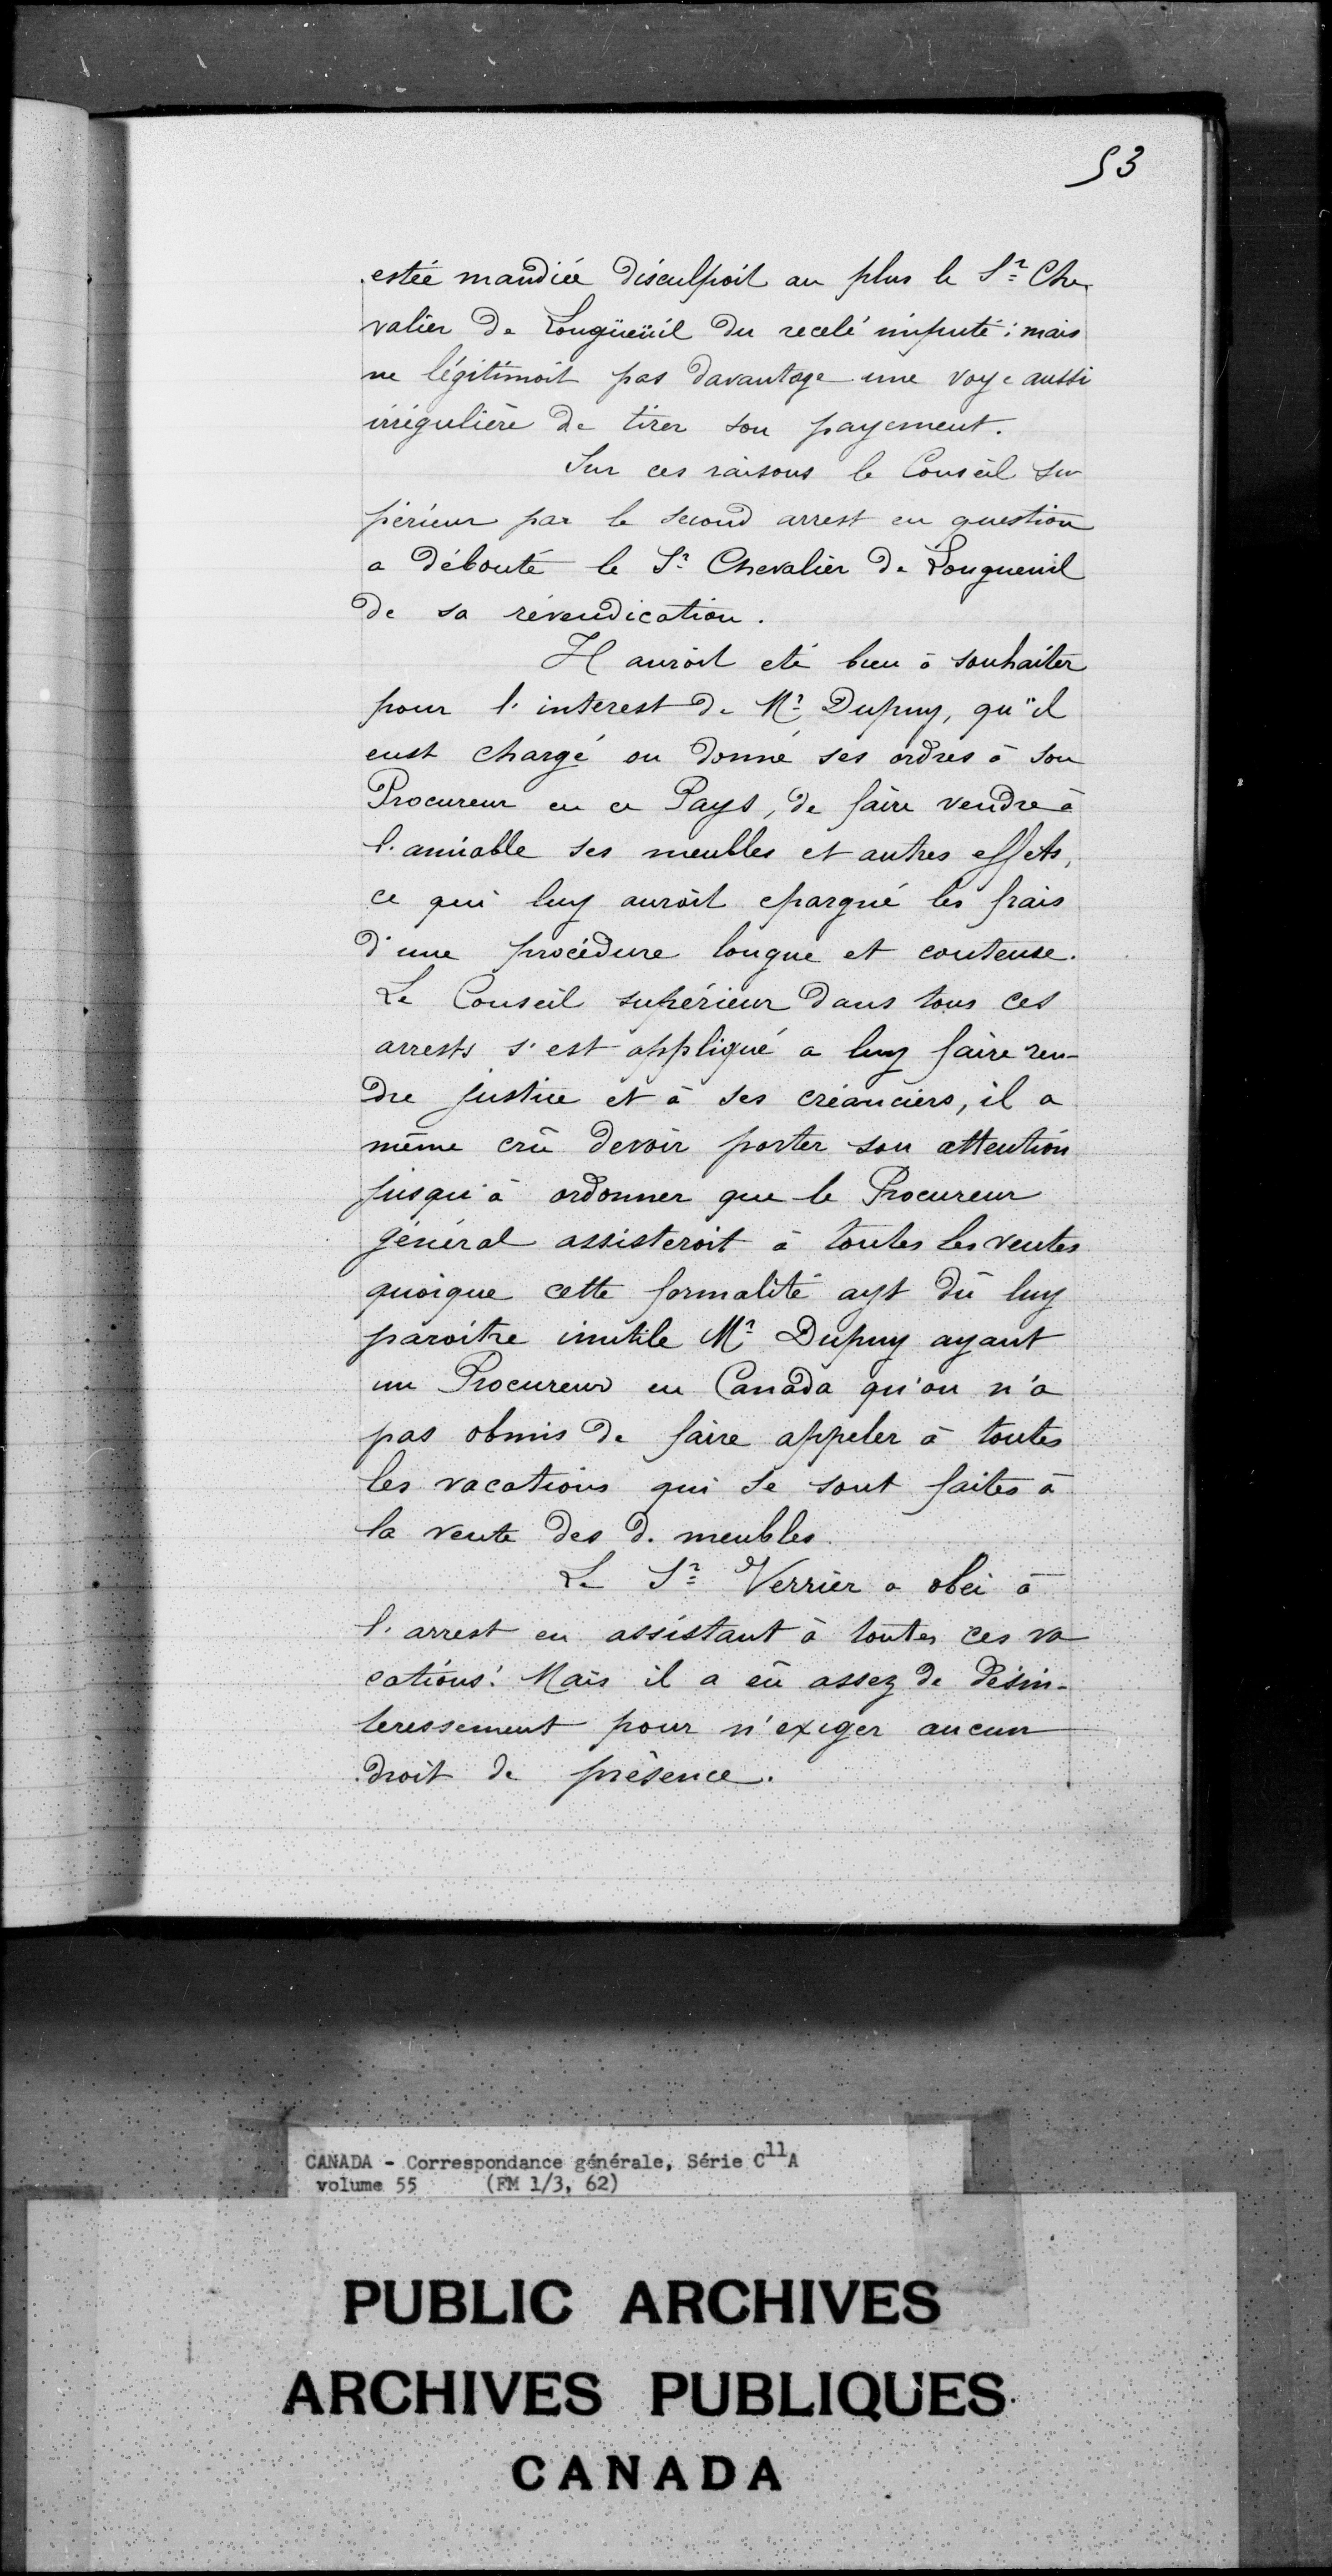 53
estée mandiée disculpoit au plus le Sr. Che
valier de Longüeüil du recelé imputé : mais
ne légitimoit pas davantage une voye aussi
irrégulière de tirer son payement.
Sur ces raisons le Conseil su
périeur par le second arrest en question
a débouté le Sr. Chevalier de Longueuil
de sa révendication.
Il auroit eté bien à souhaiter
pour l'interest de Mr. Dupuy, qu'il
eust chargé ou donné ses ordres à son
Procureur en ce Pays, de faire vendre à
l'amiable ses meubles et autres effets,
ce qui luy auroit epargné les frais
d'une procédure longue et couteuse.
Le Conseil supérieur dans tous ces
arrests s'est appliqué a luy faire ren-
dre justice et à ses créanciers, il a
même crû devoir porter son attention
jusqu'à ordonner que le Procureur
général assisteroit à toutes les ventes
quoique cette formalité ayt dû luy
paroître inutile Mr. Dupuy ayant
un Procureur en Canada qu'on n'a
pas obmis de faire appeler à toutes
les vacations qui se sont faites à
la vente des d. meubles.
Le Sr. Verrier a obéi à
l'arrest en assistant à toutes ces va
cations : Mais il a eû assez de désin-
teressement pour n'exiger aucun
droit de présence.
CANADA - Correspondance générale, Série C11A
volume 55 (FM 1/3, 62)
PUBLIC ARCHIVES
ARCHIVES PUBLIQUES
CANADA